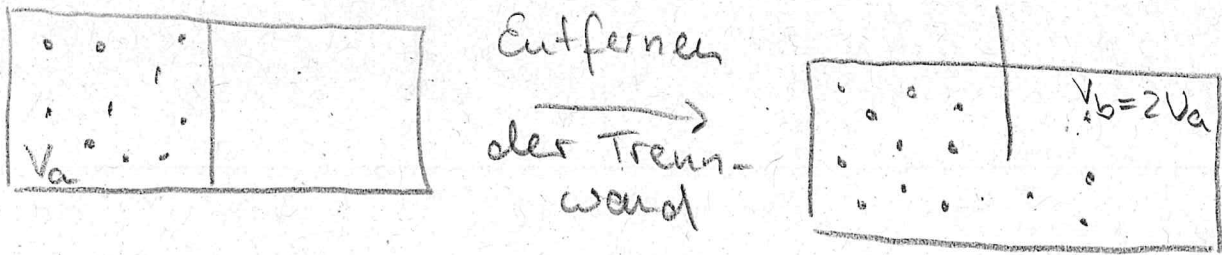 Entfernen
der Trenn-
wand
Va
Vb=2Va